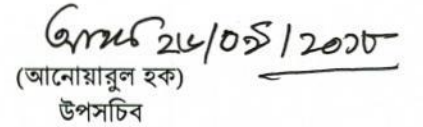 ২৬/০৯/২০১৮
(আনোয়ারুল হক)
উপসচিব